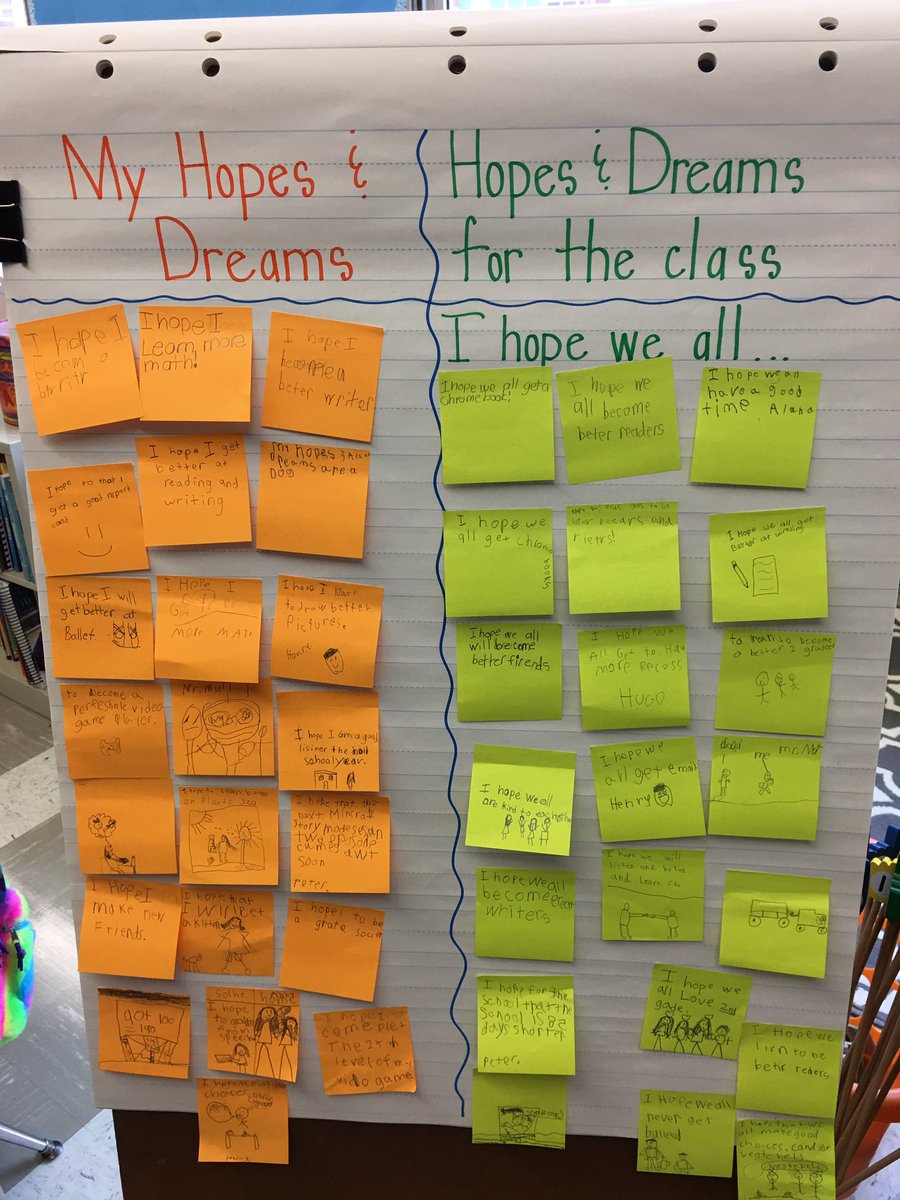 My Hopes &
Dreams
Hopes & Dreams
for the class
I hope we all...
I hope I
becom a
btr writr
I hope I
Learn more
math!
I hope I
become a
beter writer
I hope to that I
get a good report
card
I hope I get
better at
reading and
writing
My hopes &
Dreams are a
DOG
I hope I will
get better at
Ballet
I Hope I
Get To Do
MORE MATH
I hope I learn
to draw better
Pictures.
Henry
to become a
perfeshnle video
game player.
I hope I am a good
lisiner the
school year.
I hope that the
next Mincraft
Story mode seson
two
out
Soon
Peter.
I hope I
make new
Friends.
I hope that
I will get
a kitten
I hope I to be
a grate soccer
got 100
100
I hope
to
I hope I
comeplet
The
level of my
video game
choices
I hope we all get a
Chromebook!
I hope we
all become
beter readers
I hope we all
have a good
time Alana
I hope we
all get chrome
books
this class gets to be
and
rietrs!
I hope we all get
Better at writing
I hope we all
will become
better friends
I HOPE WE
All GET TO Hav
MORE RECOSS
HUGO
to become
a better 2 grader
I hope we all
are kind to each other
I hope we
all get email
Henry
dead me mr. Nat
I hope we all
become great
writers
I hope we will
listen and
and Learn
I hope for the
School that the
School is 82
days shorter
Peter.
I hope we
all Love 2nd
gade.
I Hope we
lirn to be
betr reders
I Hope We all
never get
I hope that we
all make good
choices, and for
vegetebels